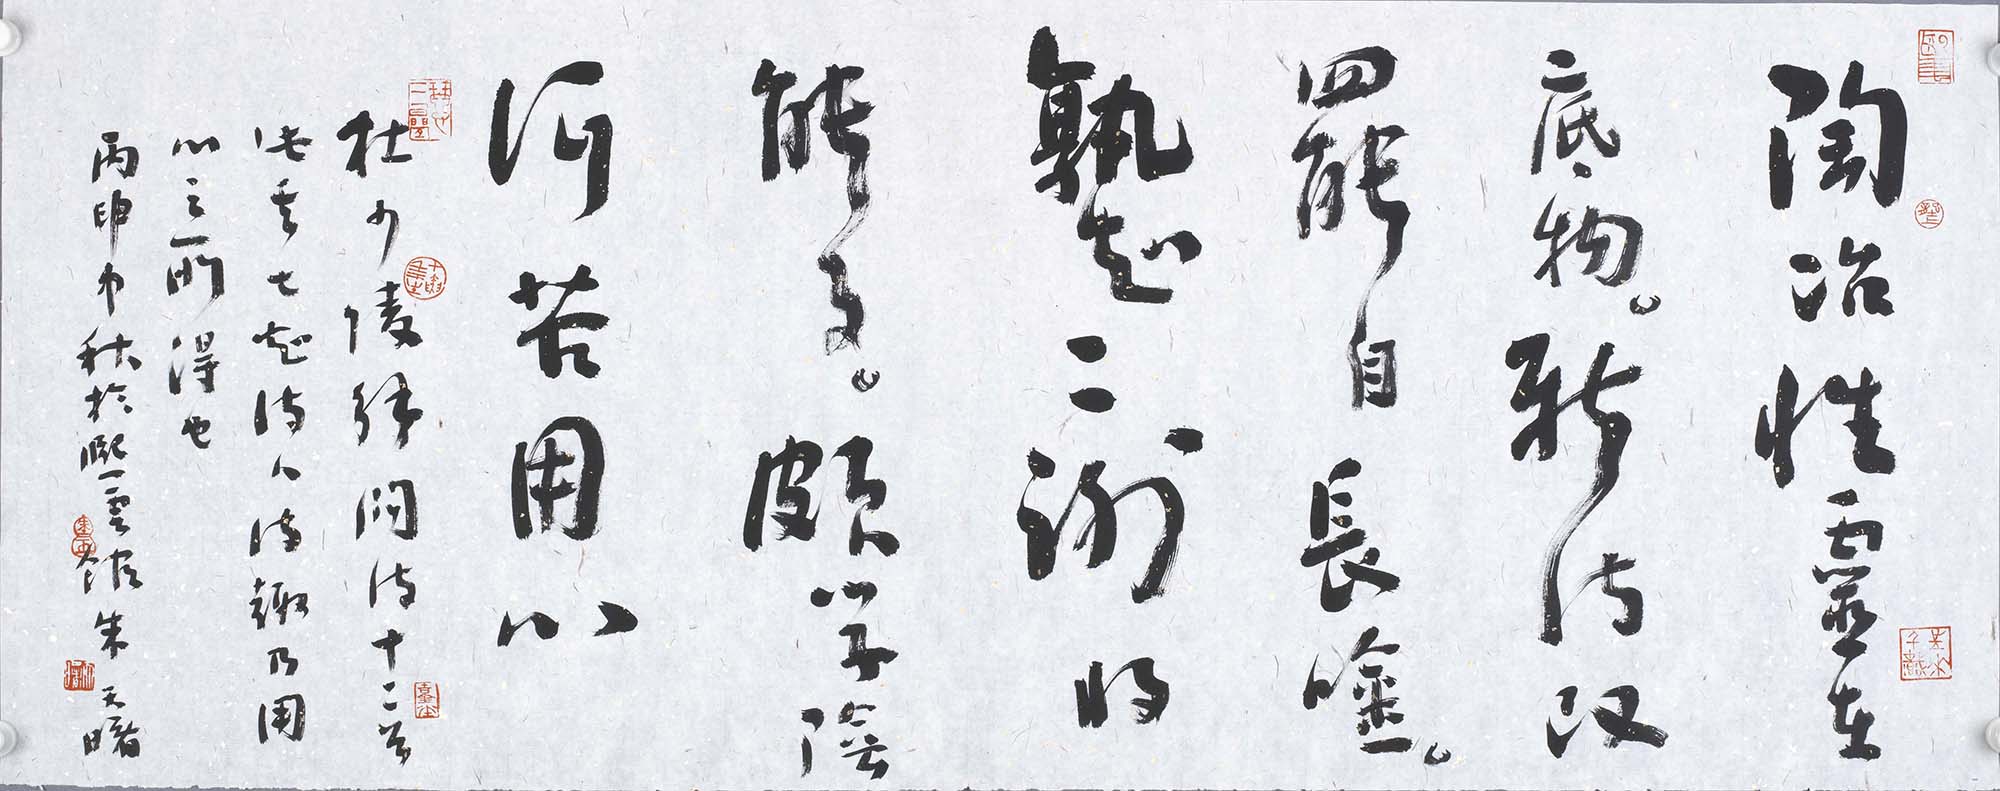 陶冶性靈在
底物新詩改
罷自長唫
孰知二謝將
能事頗學陰
何苦用心
杜少陵解悶詩十二首
此其七知詩人詩趣乃用
心之所得也
丙申中秋於熙雲館朱天曙